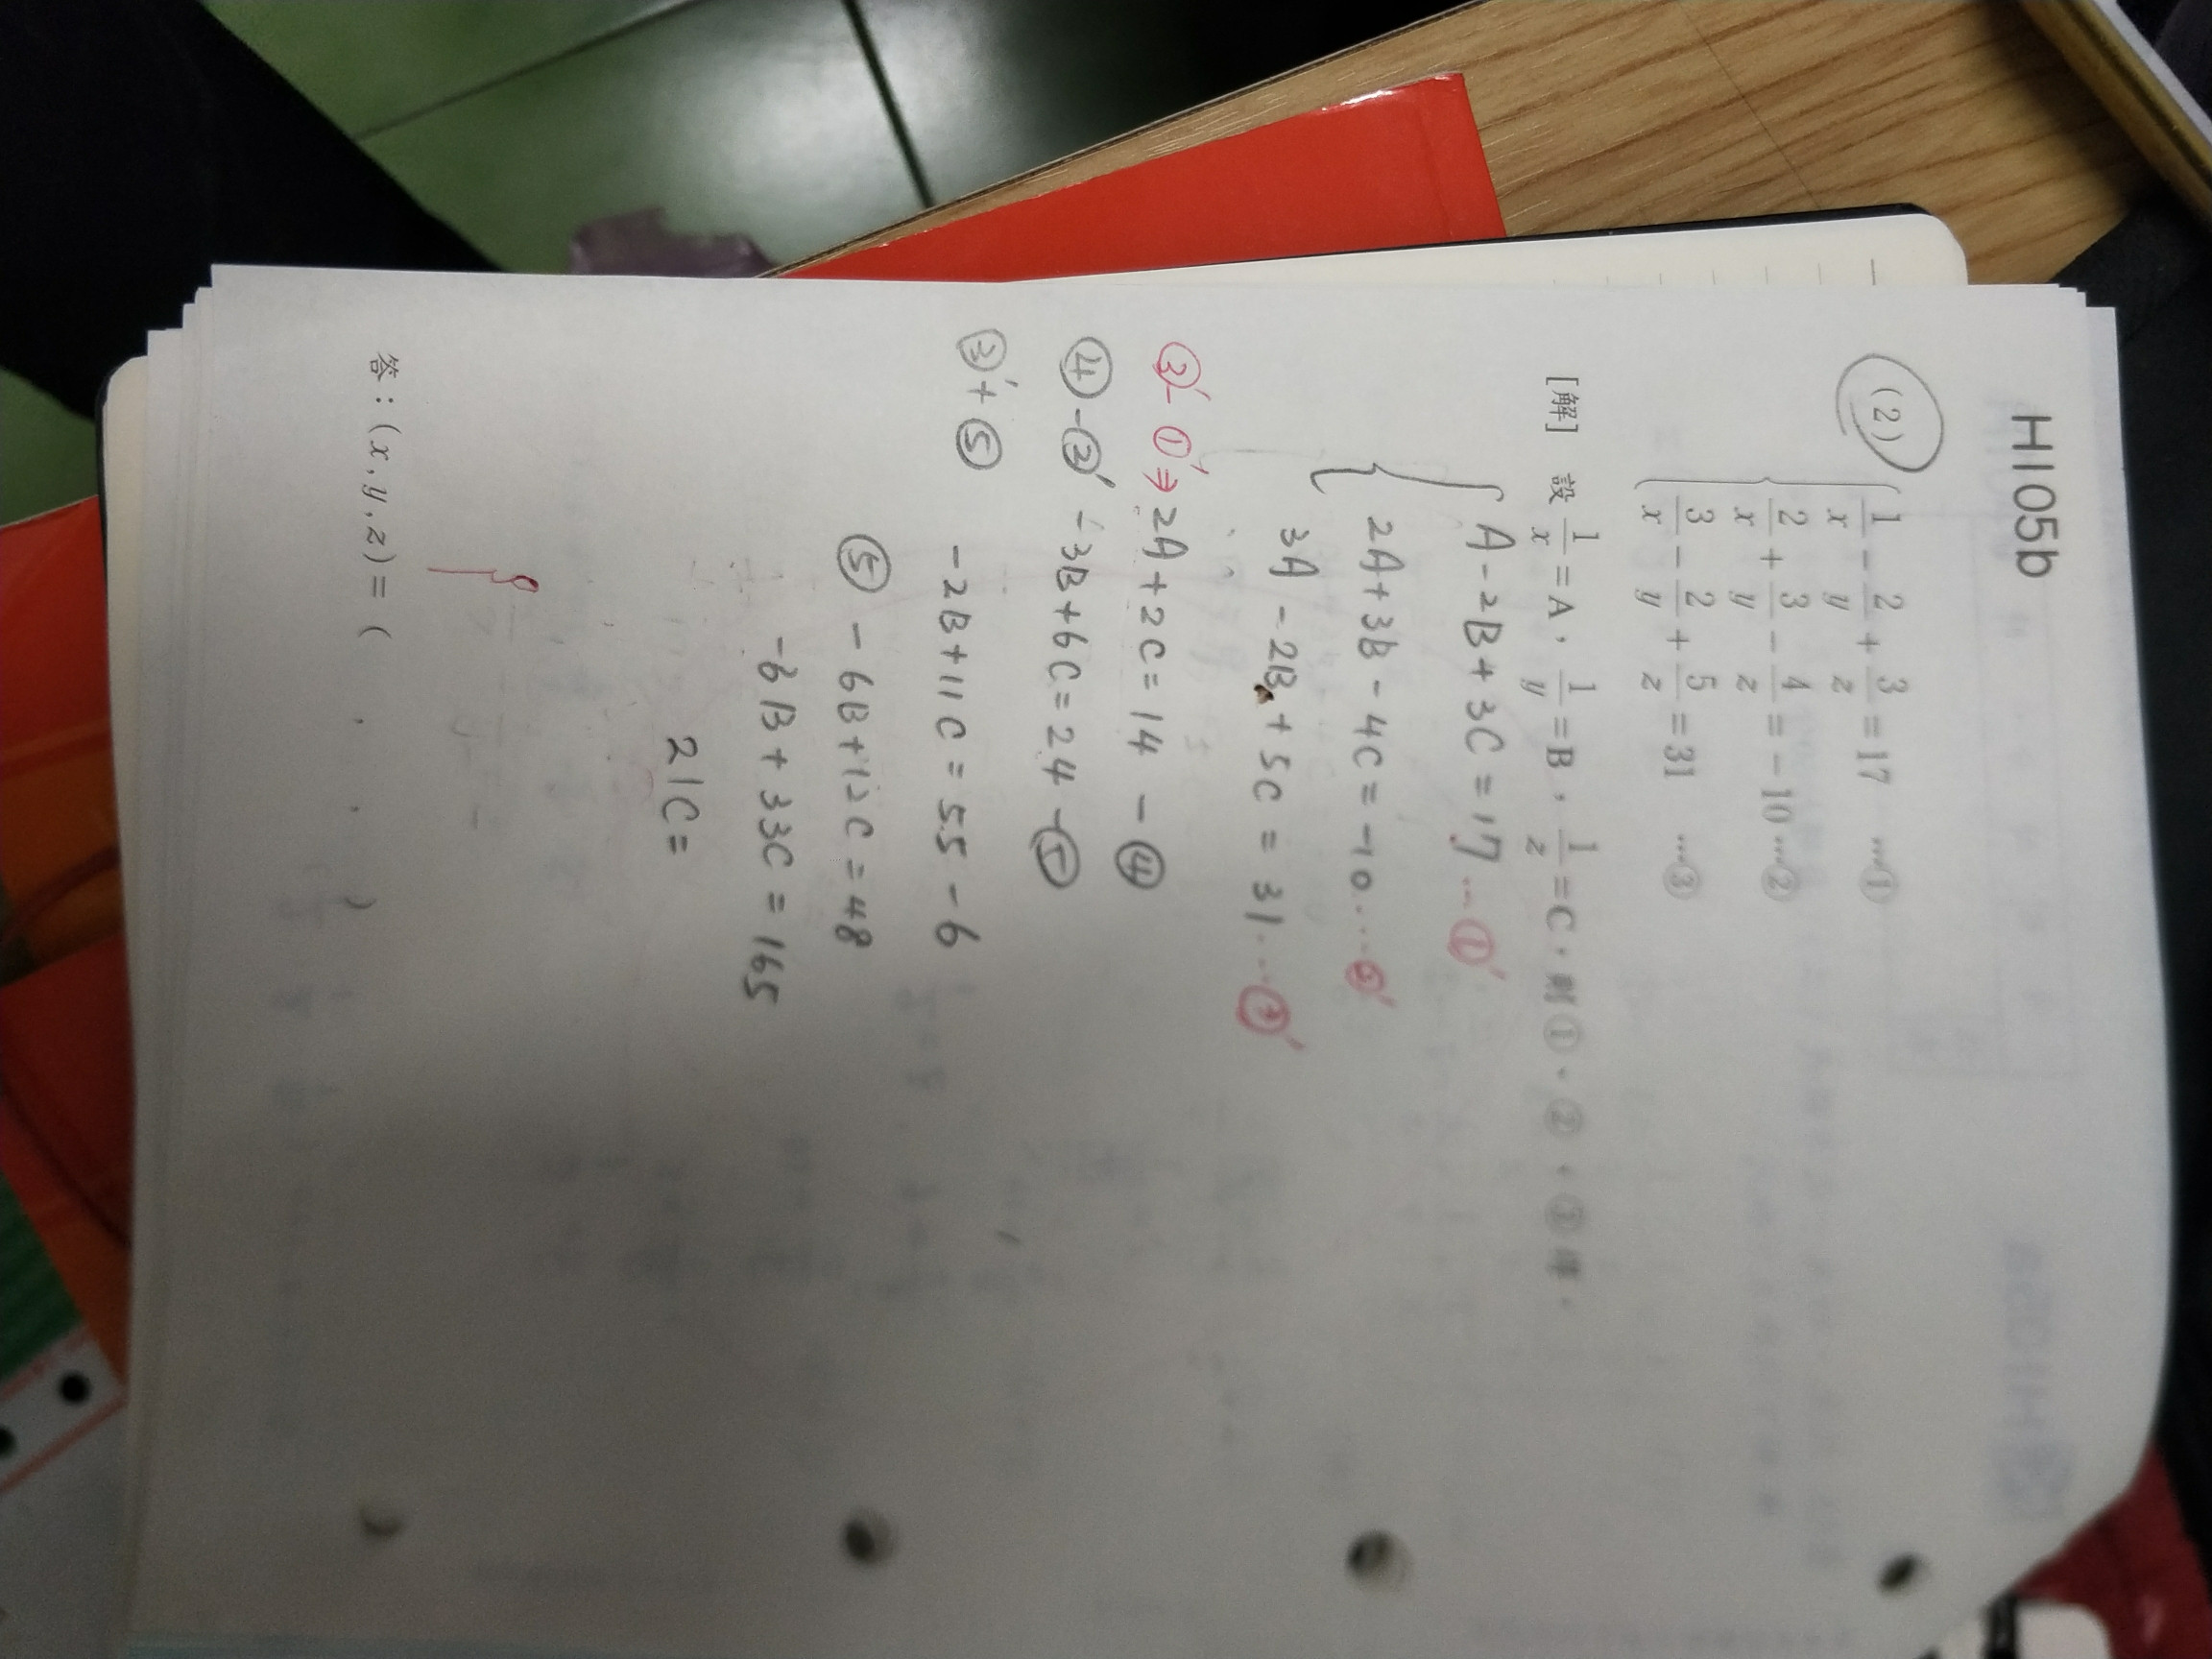 H105b
(2)
1/x - 2/y + 3/z = 17 …①
2/x + 3/y - 4/z = -10 …②
3/x - 2/y + 5/z = 31 …③
[解] 設 1/x = A, 1/y = B, 1/z = C, 則①、②、③得,
A - 2B + 3C = 17 … ①'
2A + 3B - 4C = -10 … ②'
3A - 2B + 5C = 31 … ③'
③' - ①' ⇒ 2A + 2C = 14 - ④
④ - ②' -3B + 6C = 24 - ⑤
③' + ⑤
-2B + 11C = 55 - 6
⑤ - 6B + 12C = 48
-6B + 33C = 165
21C =
答:(x, y, z) = ( , , )